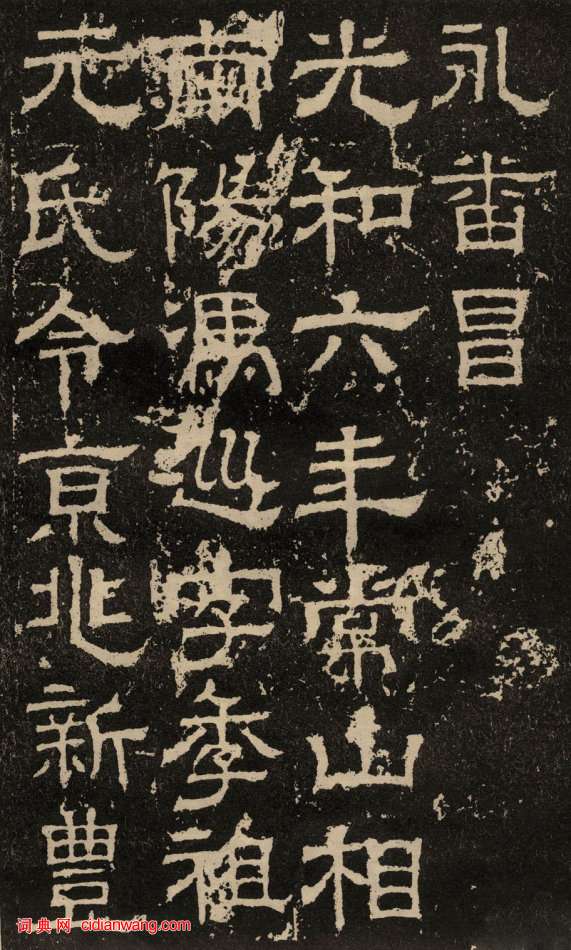 永番昌
光和六年常山相
南陽馮巡字季祖
元氏令京兆新豐
词典网 cidianwang.com